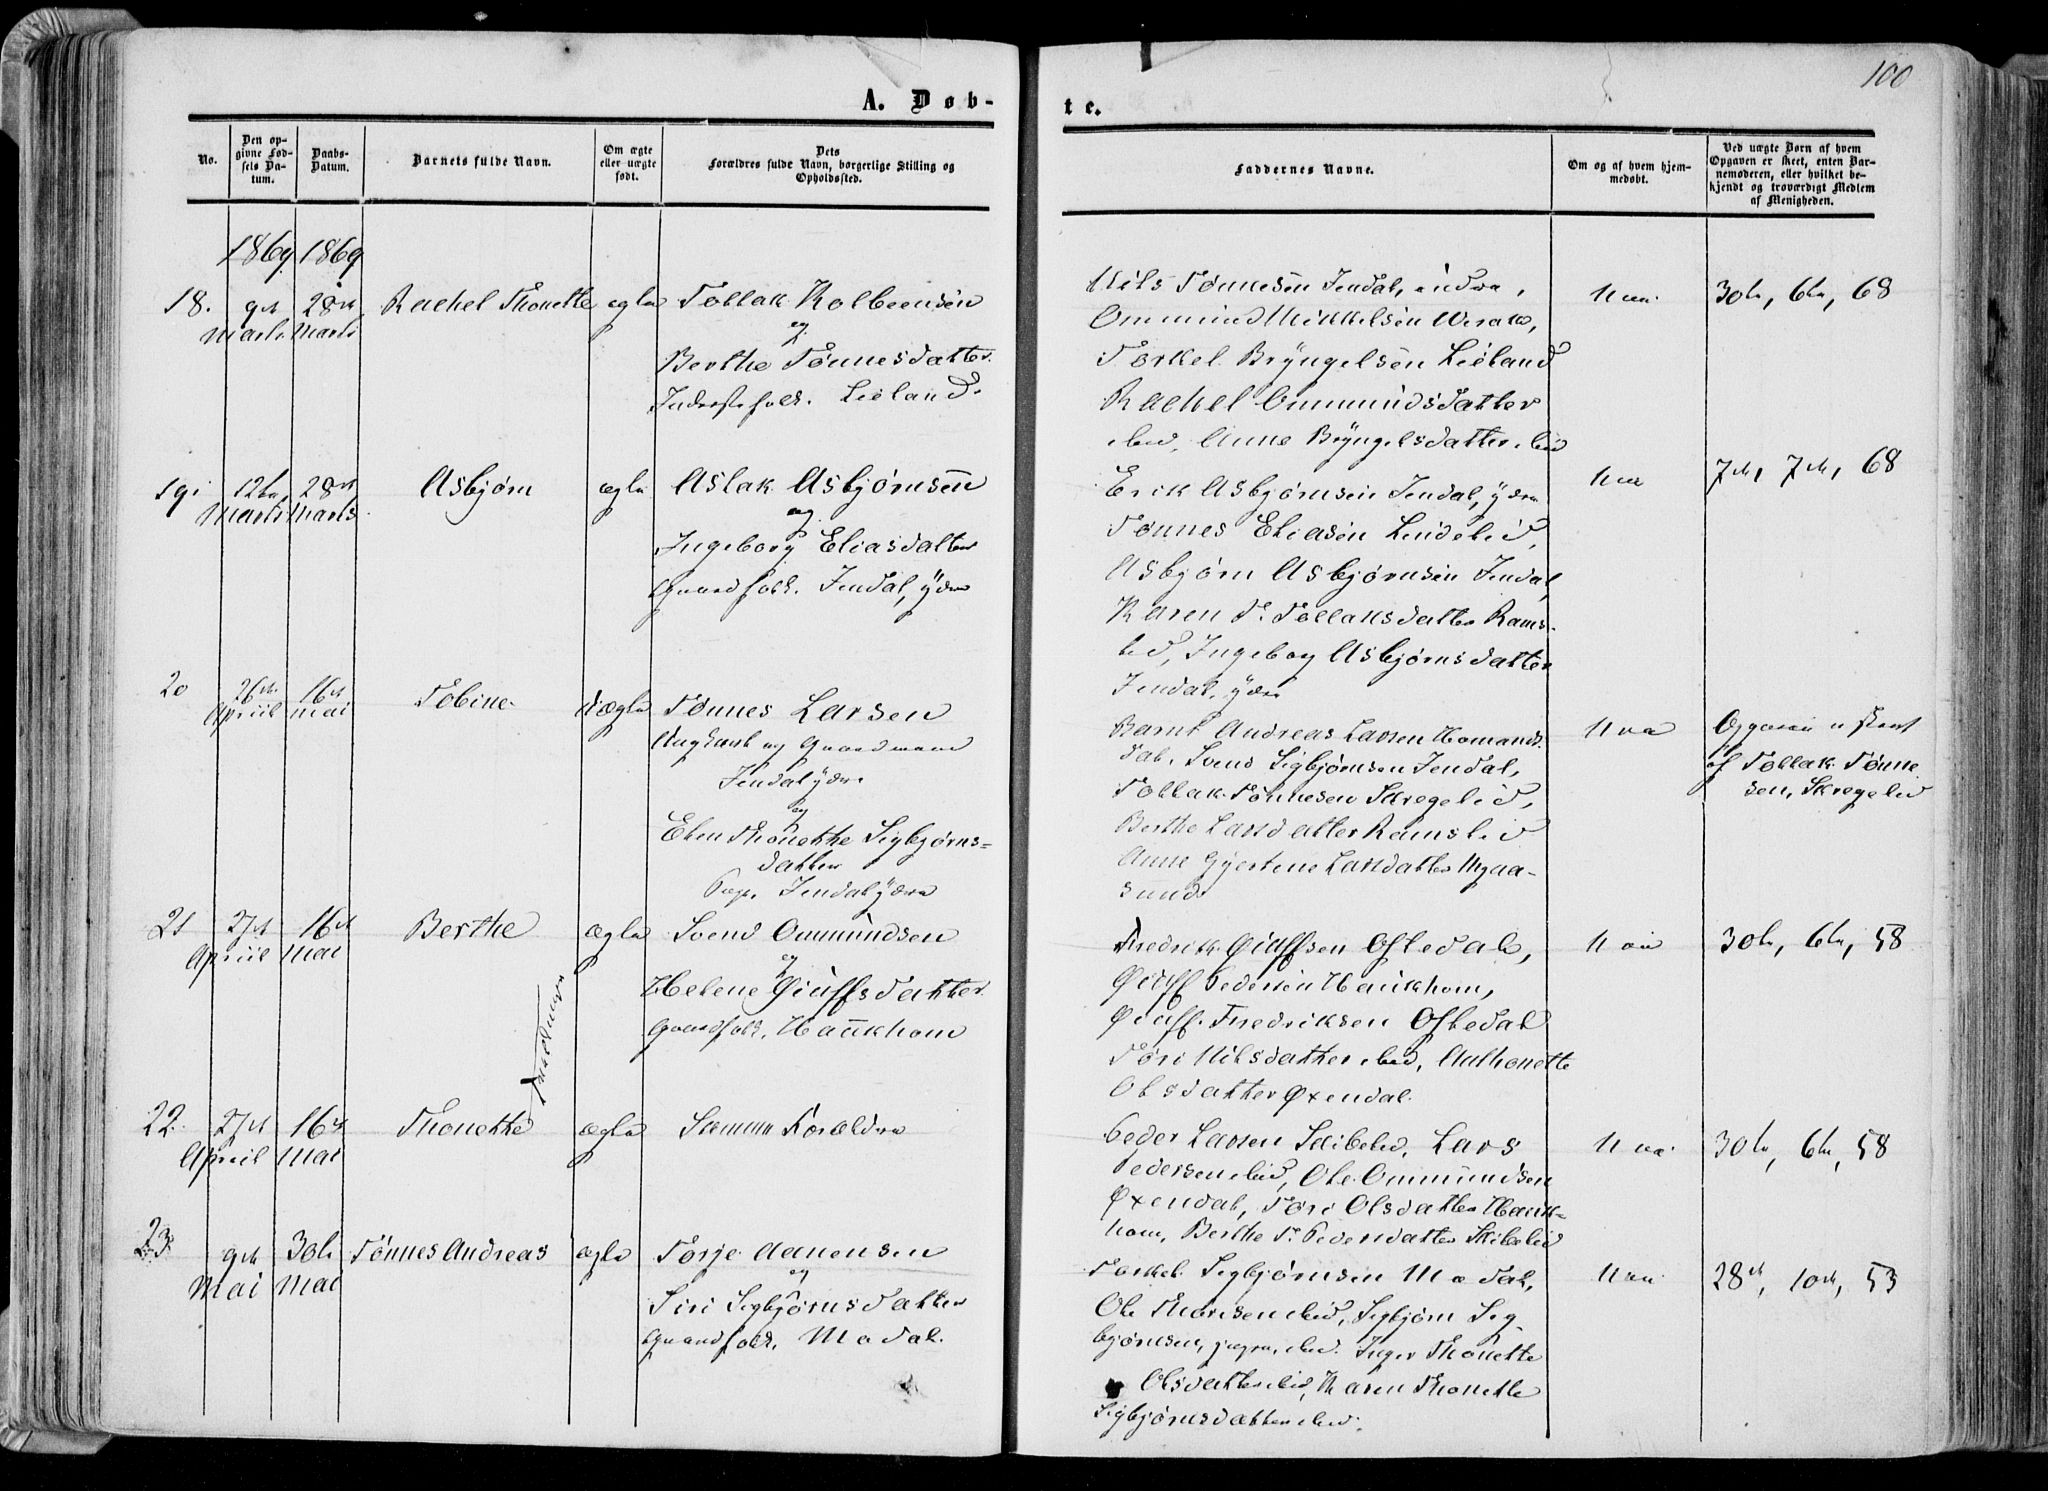 100
A. Døb-
te.
No.
Den op-
givne Fød-
sels Da-
tum.
Daabs-
Datum.
Barnets fulde Navn.
Om ægte
eller uægte
født.
Dets
Forældres fulde Navn, borgerlige Stilling og
Opholdssted.
Faddernes Navne.
Om og af hvem hjem-
medøbt.
Ved uægte Børn af hvem
Opgaven er skeet, enten Bar-
nemoderen, eller hvilket be-
kjendt og troværdigt Medlem
af Menigheden.
1869 1869
18. 9de 28de Rachel Thonette ægte Tollak Kolbeensen
Marts Marts og
Berthe Tønnesdatter
Inderstefolk. Lieland.
Nils Tønnesen Jendal, indre,
Ommund Mikkelsen
Torkel Bryngelsen Lieland
Rachel Ommundsdatter
ibid, Anne Bryngelsdatter ibid
30te, 6te, 68
19. 12te 28de Asbjørn ægte Aslak Asbjørnsen
Marts Marts og
Ingeborg Eliasdatter
Gaardfolk. Jendal, ydre
Erik Asbjørnsen Jendal, ydre
Tønnes Eliasen Lindelid,
Asbjørn Asbjørnsen Jendal,
Karen T. Tollaksdatter Rams-
lid, Ingeborg Asbjørnsdatter
Jendal, ydre
7de, 7de, 68
20 26de 16de Tobine uægte Tønnes Larsen
April Mai Ungkarl og Gaardmand
Jendal ydre
og
Elen Thonette Sigbjørns-
datter
Pige, Jendal ydre
Bernt Andreas Larsen Homands-
dal, Svend Sigbjørnsen Jendal,
Tollak Tønnesen Skregelid,
Berthe Larsdatter Ramslid
Anne Gjertine Larsdatter Mgaa-
sund
Opgaven er skeet
af Tollak Tønne
sen, Skregelid
21 27de 16de Berthe ægte Svend Ommundsen
April Mai og
Helene Øiuffsdatter
Gaardfolk, Haukhom
Tvillinger
Fredrik Øiuffsen Oftedal,
Øiuff Pedersen Haukhom,
Øiuff Fredriksen Oftedal
Tøri Nilsdatter ibid, Aalhonette
Olsdatter Øxendal.
30te, 6te, 58
22. 27de 16de Thonette ægte Samme Forældre
April Mai
Peder Larsen Skibelid, Lars
Pedersen ibid, Ole Ommundsen
Øxendal, Tøri Olsdatter Hauk-
hom, Berthe T. Pedersdatter Skibelid
30te, 6te, 58
23. 9de 30te Tønnes Andreas ægte Torje Aanensen
Mai Mai og
Siri Sigbjørnsdatter
Gaardfolk, Modal.
Torkel Sigbjørnsen Modal,
Ole Thorsen ibid, Sigbjørn Sig-
bjørnsen, yngre, ibid. Inger Thonette
Olsdatter ibid, Karen Thonette
Sigbjørnsdatter ibid.
28de, 10de, 53